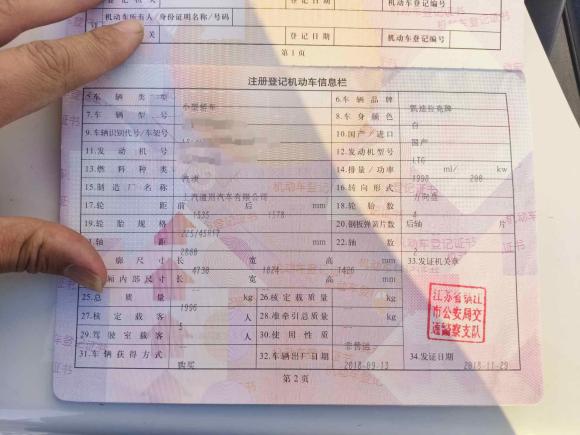 登记机关 登记日期 机动车登记编号
机动车所有人/身份证明名称/号码
关 登记日期 机动车登记编号
第1页
注册登记机动车信息栏
5.车辆类型 小型轿车 6.车辆品牌 凯迪拉克牌
7.车辆型号 8.车身颜色 白
9.车辆识别代号/车架号 10.国产/进口 国产
11.发动机号 12.发动机型号 LTG
13.燃料种类 汽油 14.排量/功率 1998 ml/ 200 kw
15.制造厂名称 上汽通用汽车有限公司 16.转向形式 方向盘
17.轮距 前 1535 后 1570 mm 18.轮胎数 4
19.轮胎规格 225/45R17 20.钢板弹簧片数 后轴 片
轴距 2860 mm 22.轴数 2
廓尺寸 长 4730 宽 1824 高 1426 mm 33.发证机关章
厢内部尺寸 长 宽 高 mm
25.总质量 1996 kg 26.核定载质量 kg
27.核定载客 5 人 28.准牵引总质量 kg
29.驾驶室载客 人 30.使用性质 非营运
31.车辆获得方式 购买 32.车辆出厂日期 2018-09-13 34.发证日期 2018-11-29
江苏省镇江
市公安局交
通警察支队
第2页